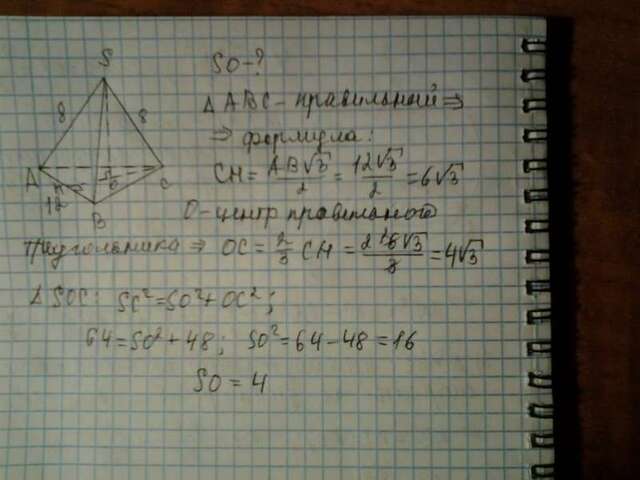 SO-?
S
8 8
△ABC - правильный ⇒
⇒ формула:
A C
H O
12
B
CH = AB√3/2 = 12√3/2 = 6√3
O-центр правильного
треугольника ⇒ OC = 2/3 CH = 2·6√3/3 = 4√3
△SOC: SC² = SO² + OC²;
64 = SO² + 48; SO² = 64 - 48 = 16
SO = 4